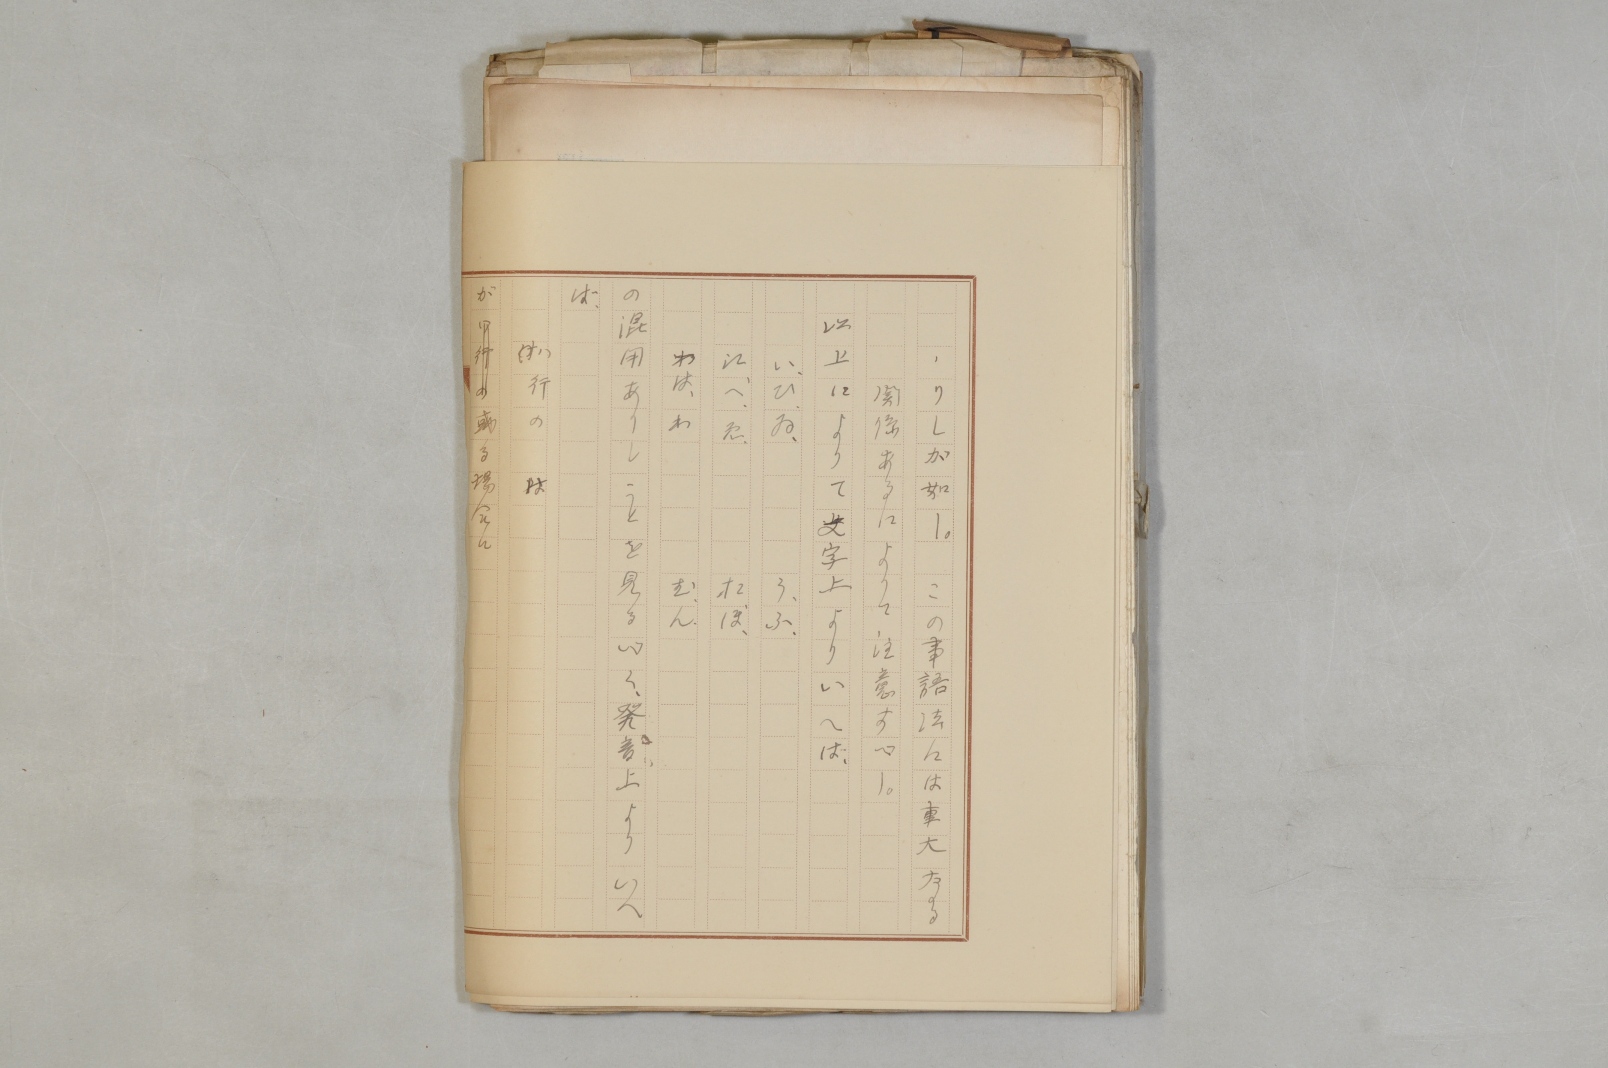 、りしが如し。 この事語法には重大なる
関係あるによりて注意すべし。
以上によりて文字上よりいへば、
い、ひ、ゐ、 う、ふ、
江、べ、ゑ、 オ、ぼ、
わは、わ む、ん
の混用ありしことを見るべく、発音上よりいへ
ば、
行の は
が行の或る場合に